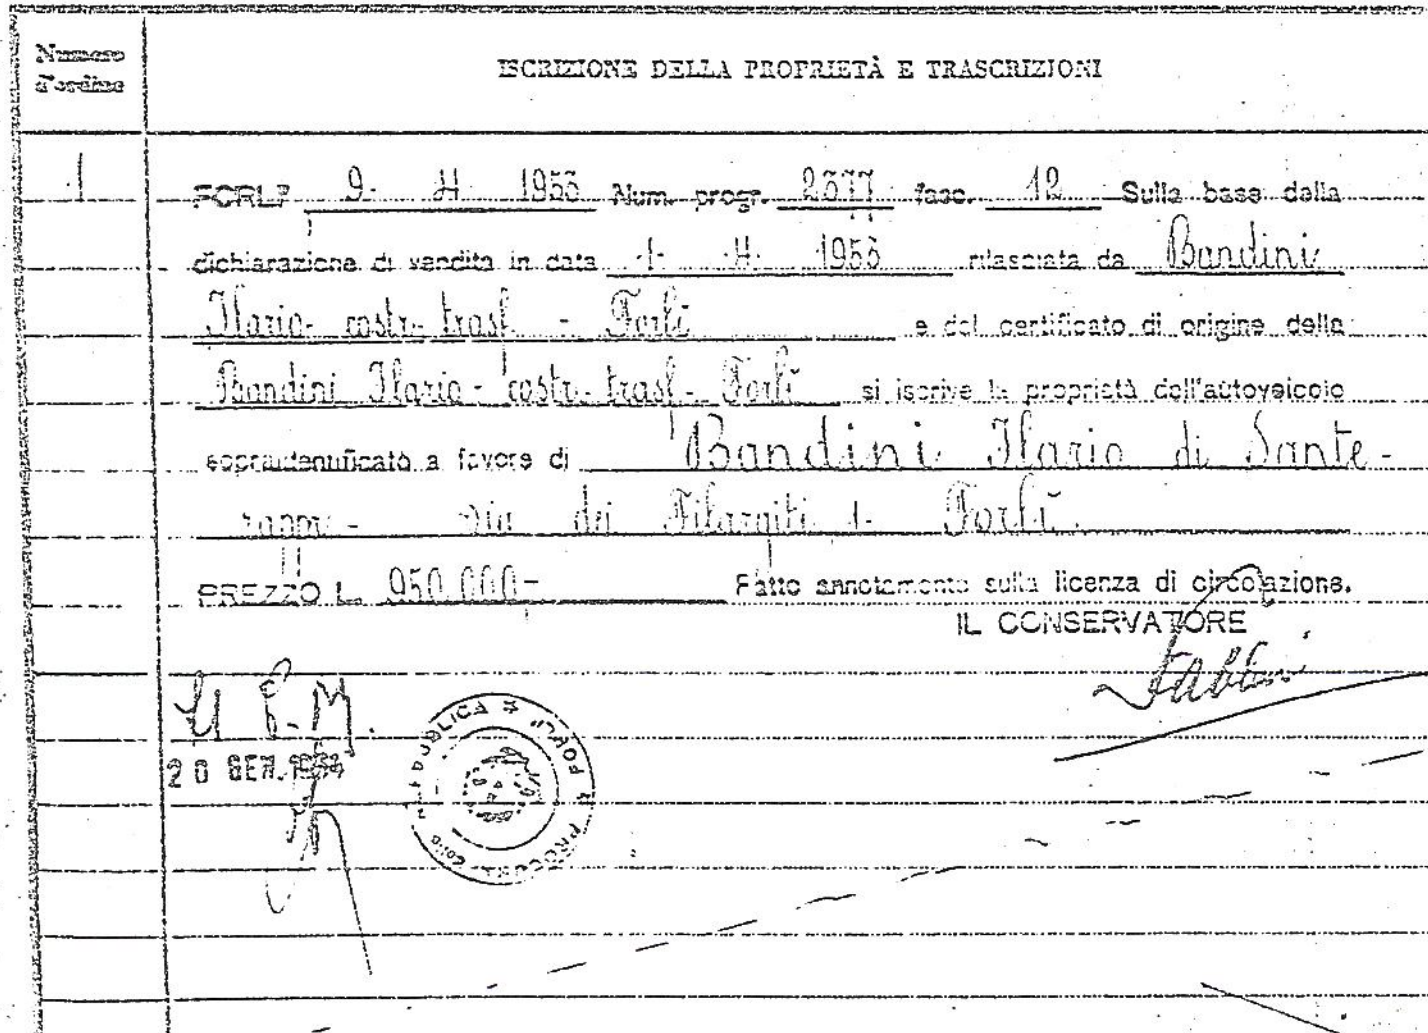 Numero
d'ordine
ISCRIZIONE DELLA PROPRIETÀ E TRASCRIZIONI
1
FORLI' 9- 4- 1953 Num. progr. 2377 fasc. 12 Sulla base della
dichiarazione di vendita in data 1- 4- 1953 rilasciata da Bandini
Ilario- costr. trasf - Forlì e del certificato di origine della
Bandini Ilario- costr. trasf- Forlì si iscrive la proprietà dell'autoveicolo
sopraidentificato a favore di Bandini Ilario di Sante-
via dei Filergiti 1- Forlì.
PREZZO L. 950.000- Fatto annotamento sulla licenza di circolazione.
IL CONSERVATORE
Il P.M.
20 GEN. 1954
REPUBBLICA * FORLI' PROCURA